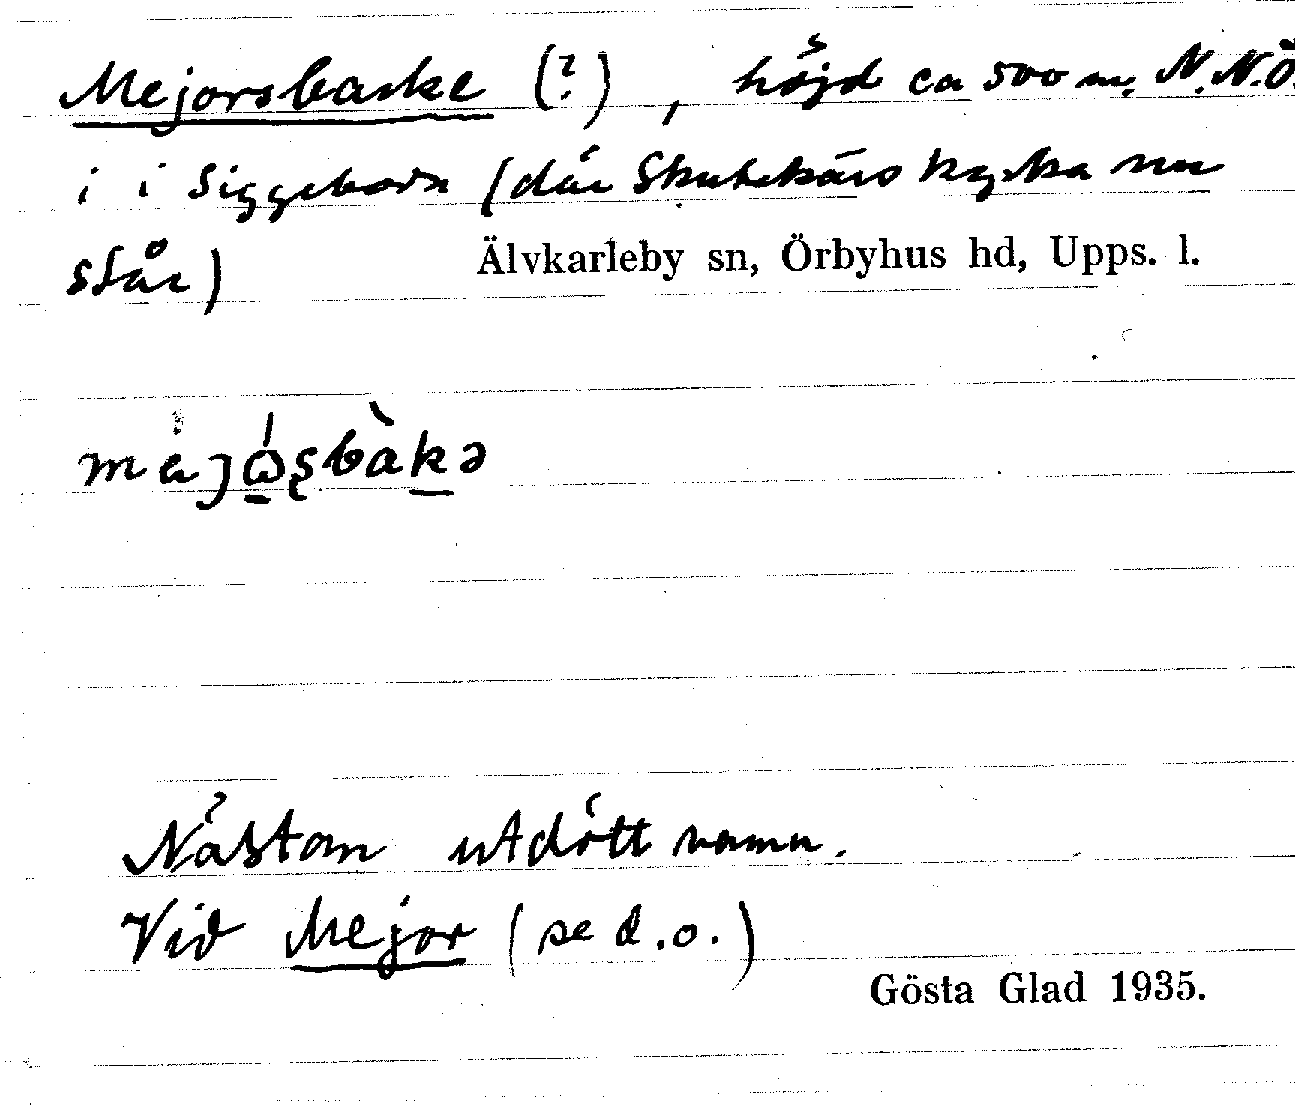 Mejorsbacke (?), höjd ca 500 m. N.N.Ö.
i i Siggeboda (där Skutskärs kyrka nu
står) Älvkarleby sn, Örbyhus hd, Upps. l.
Nästan utdött namn.
Vid Mejor (se d.o.)
Gösta Glad 1935.